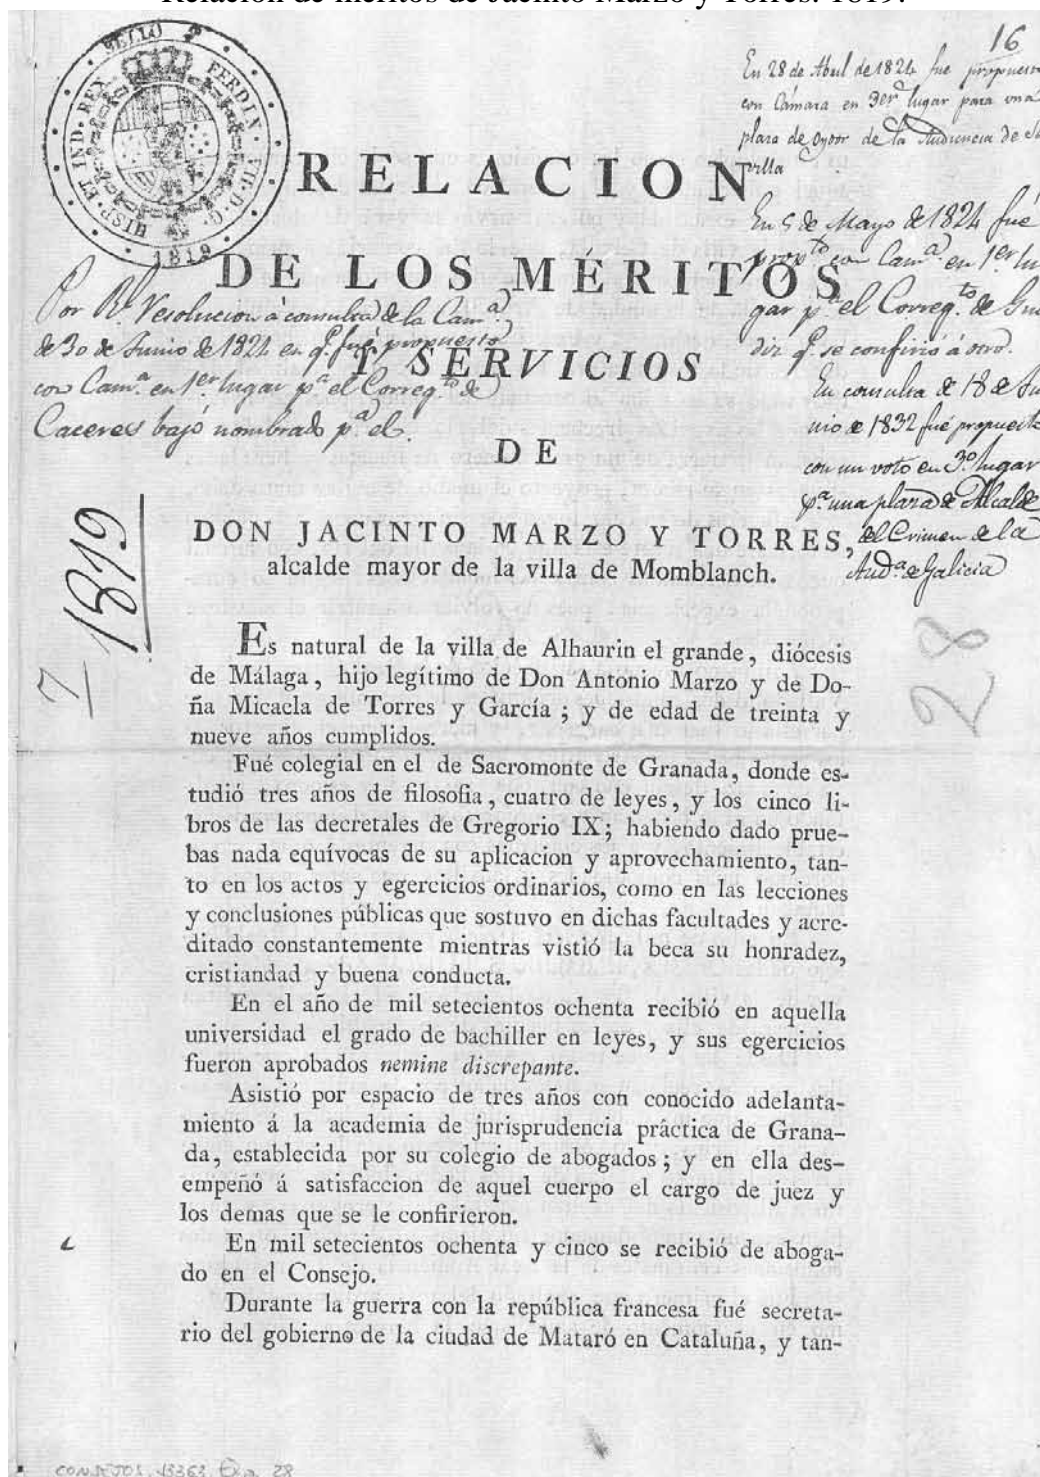 Relación de méritos de Jacinto Marzo y Torres. 1819.
SELLO
FERDIN. VII. D. G.
HISP. ET IND. REX
1819
16
En 28 de Abril de 1824 fue propuesto
con Cámara en 3er lugar para una
plaza de Oydor de la Audiencia de Se
villa
RELACION
En 5 de Mayo de 1824 fué
prop.to con Cam.a en 1er lu
gar p.a el Correg.to de
diz q.e se confirió á otro.
DE LOS MÉRITOS
Por Rl. resolucion á consulta de la Cam.a
de 30 de Junio de 1824 en q.e fué propuesto
con Cam.a en 1er lugar p.a el Correg.to de
Caceres bajó nombrado p.a el.
Y SERVICIOS
En consulta de 18 de Ju
nio de 1832 fué propuesto
con un voto en 3.o lugar
p.a una plaza de Alcalde
del Crimen de la
Aud.a de Galicia
DE
1819
7
DON JACINTO MARZO Y TORRES,
alcalde mayor de la villa de Momblanch.
28
Es natural de la villa de Alhaurin el grande, diócesis
de Málaga, hijo legítimo de Don Antonio Marzo y de Do-
ña Micaela de Torres y García; y de edad de treinta y
nueve años cumplidos.
Fué colegial en el de Sacromonte de Granada, donde es-
tudió tres años de filosofia, cuatro de leyes, y los cinco li-
bros de las decretales de Gregorio IX; habiendo dado prue-
bas nada equívocas de su aplicacion y aprovechamiento, tan-
to en los actos y egercicios ordinarios, como en las lecciones
y conclusiones públicas que sostuvo en dichas facultades y acre-
ditado constantemente mientras vistió la beca su honradez,
cristiandad y buena conducta.
En el año de mil setecientos ochenta recibió en aquella
universidad el grado de bachiller en leyes, y sus egercicios
fueron aprobados nemine discrepante.
Asistió por espacio de tres años con conocido adelanta-
miento á la academia de jurisprudencia práctica de Grana-
da, establecida por su colegio de abogados; y en ella des-
empeñó á satisfaccion de aquel cuerpo el cargo de juez y
los demas que se le confirieron.
En mil setecientos ochenta y cinco se recibió de aboga-
do en el Consejo.
Durante la guerra con la república francesa fué secreta-
rio del gobierno de la ciudad de Mataró en Cataluña, y tan-
CONSEJOS, 13363, Exp. 28